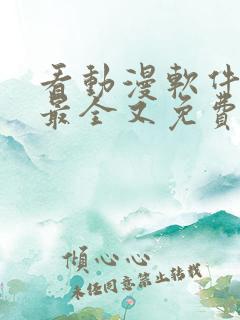 看動漫軟件
最全又免費
傾心心
未經同意禁止轉載